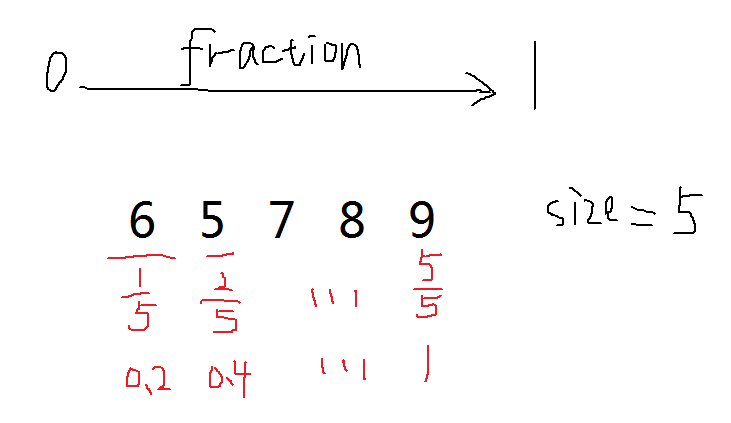 0 fraction 1
6 5 7 8 9 size = 5
1/5 2/5 ... 5/5
0.2 0.4 ... 1